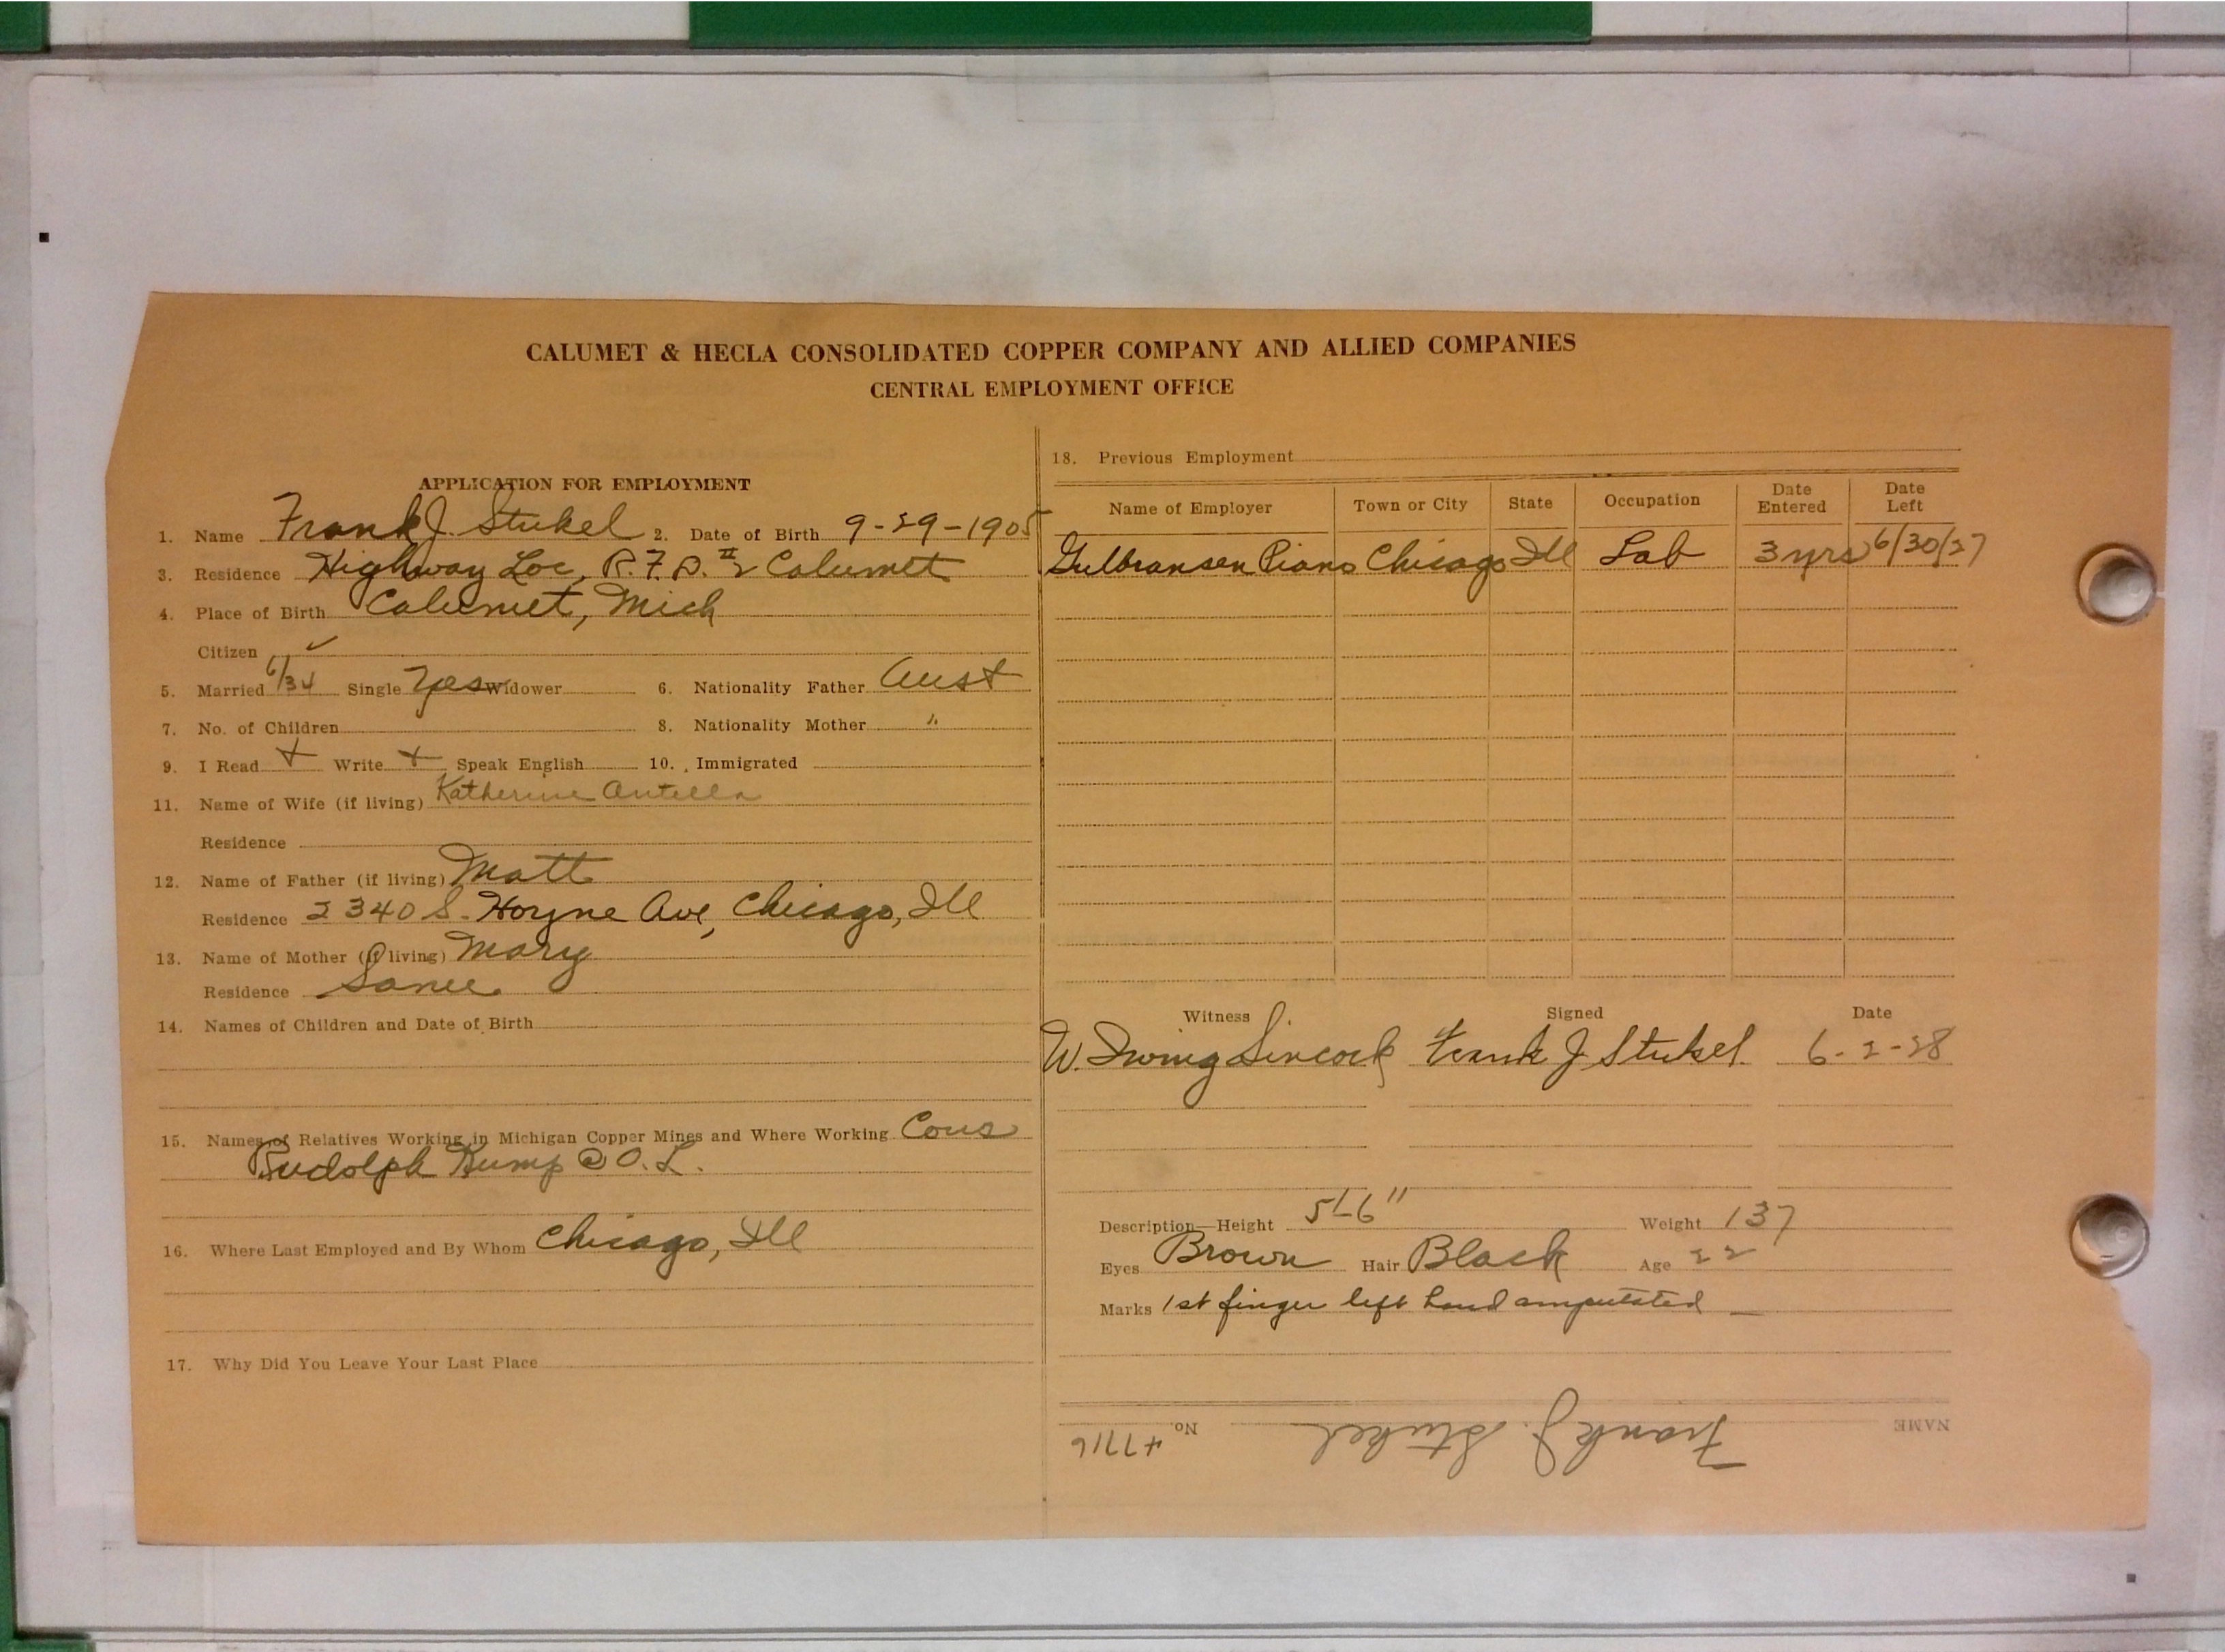 CALUMET & HECLA CONSOLIDATED COPPER COMPANY AND ALLIED COMPANIES
CENTRAL EMPLOYMENT OFFICE
APPLICATION FOR EMPLOYMENT
1. Name Frank J. Stukel 2. Date of Birth 9-29-1905
3. Residence Highway Loc, R.F.D. #2 Calumet
4. Place of Birth Calumet, Mich
Citizen ✓
5. Married 6/34 Single Yes Widower 6. Nationality Father Aust
7. No. of Children 8. Nationality Mother "
9. I Read + Write + Speak English 10. Immigrated
11. Name of Wife (if living) Katherine Antilla
Residence
12. Name of Father (if living) Matt
Residence 2340 S. Hoyne Ave, Chicago, Ill
13. Name of Mother (if living) Mary
Residence Same
14. Names of Children and Date of Birth
15. Names of Relatives Working in Michigan Copper Mines and Where Working Cous
Rudolph Kump @ O.L.
16. Where Last Employed and By Whom Chicago, Ill
17. Why Did You Leave Your Last Place
18. Previous Employment
Name of Employer Town or City State Occupation Date Entered Date Left
Gulbransen Piano Chicago Ill Lab 3 yrs 6/30/27
Witness Signed Date
W. Irving Sincock Frank J Stukel 6-2-28
Description—Height 5'-6" Weight 137
Eyes Brown Hair Black Age 22
Marks 1st finger left hand amputated —
NAME Frank J. Stukel No. 47716